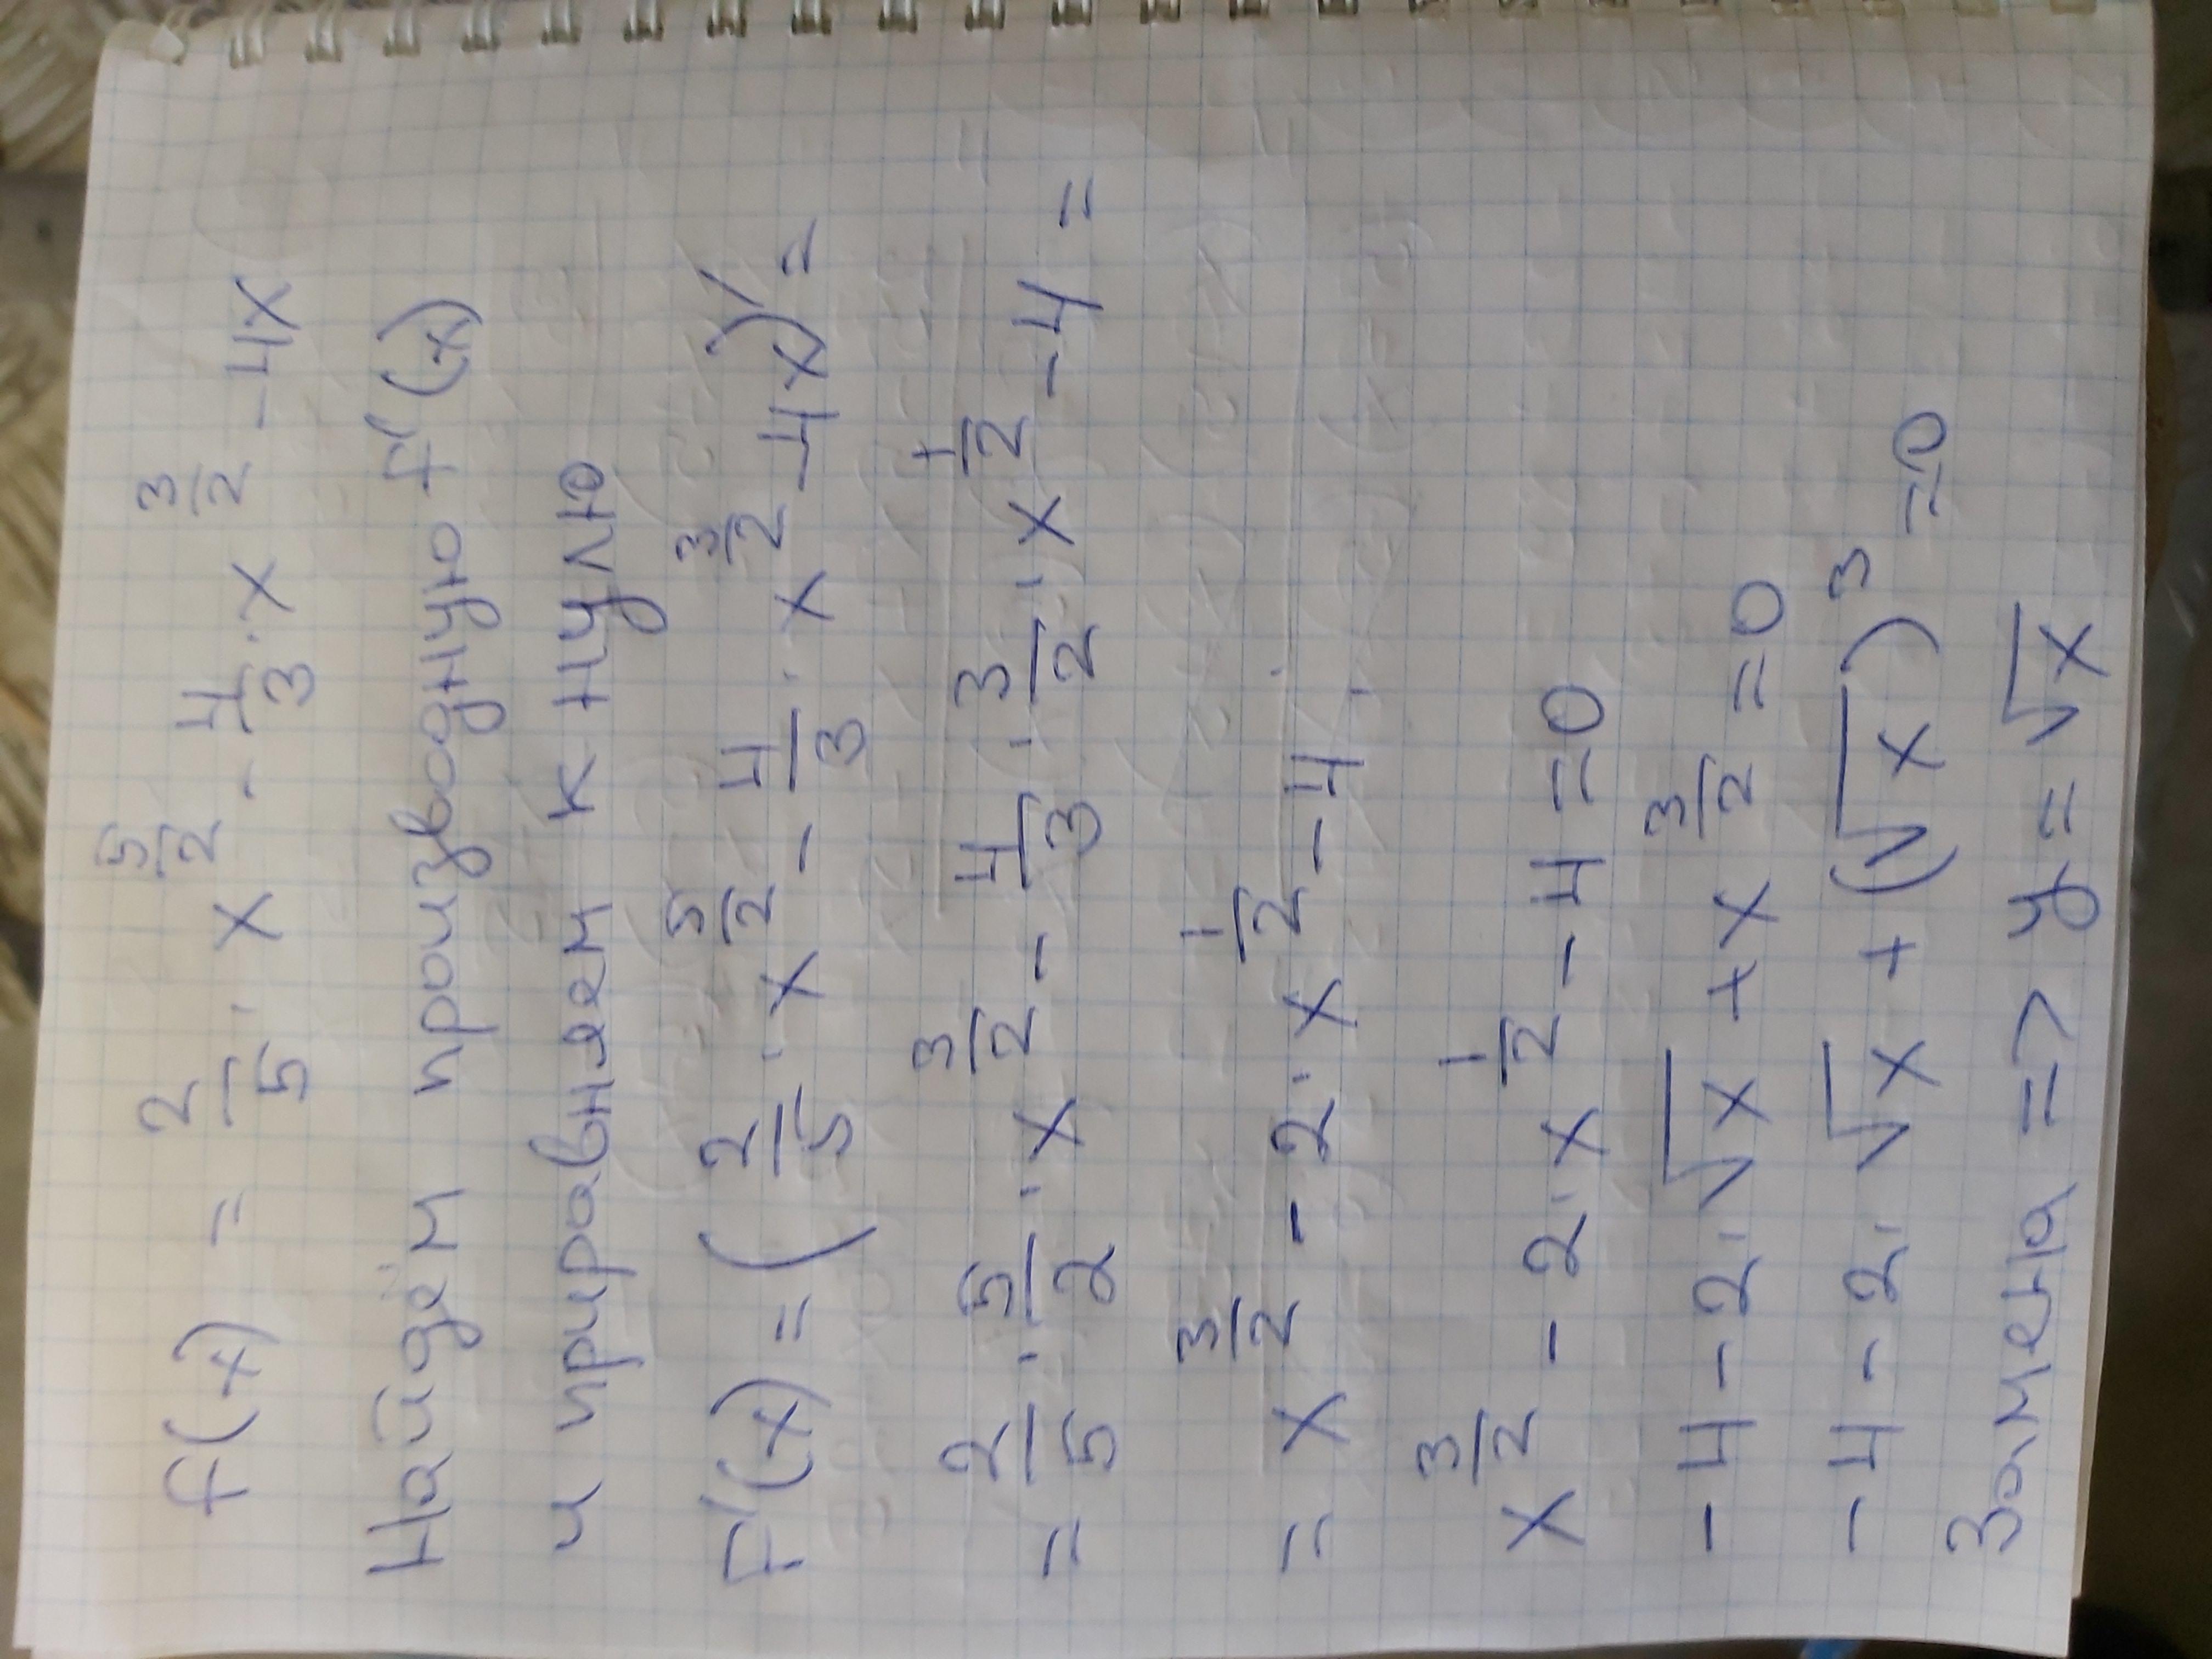 f(x) = 2/5 · x^(5/2) - 4/3 · x^(3/2) - 4x
Найдём производную f'(x)
и приравняем к нулю
F'(x) = (2/5 · x^(5/2) - 4/3 · x^(3/2) - 4x)' =
= 2/5 · 5/2 · x^(3/2) - 4/3 · 3/2 · x^(1/2) - 4 =
= x^(3/2) - 2 · x^(1/2) - 4
x^(3/2) - 2 · x^(1/2) - 4 = 0
- 4 - 2 · √x + x^(3/2) = 0
- 4 - 2 · √x + (√x)^3 = 0
Замена => y = √x